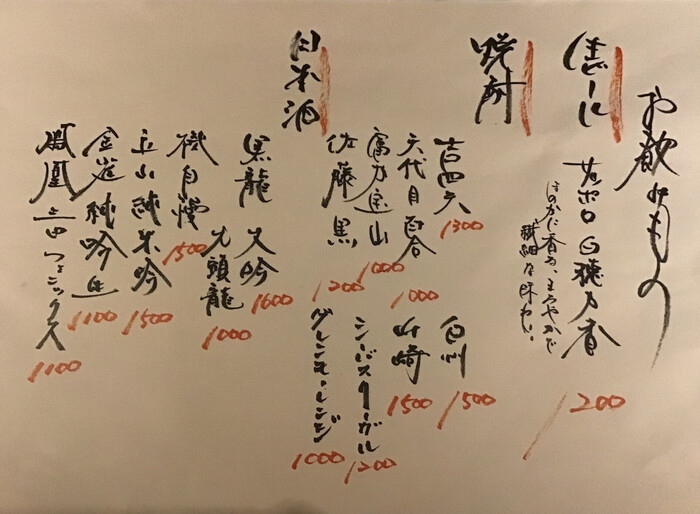 お飲みもの
生ビール
サッポロ 白穂乃香
ほのかに香る、まろやかで
繊細な味わい。
1200
焼酎
吉四六
1300
六代目百合
1000
富乃宝山
1000
佐藤 黒
1200
白州
1500
山崎
1500
シーバスリーガル
1200
グレンモーレンジ
1000
日本酒
黒龍 大吟
1600
九頭龍
1000
磯自慢
1500
立山 純米吟
1500
金雀 純吟
1100
鳳凰
1100